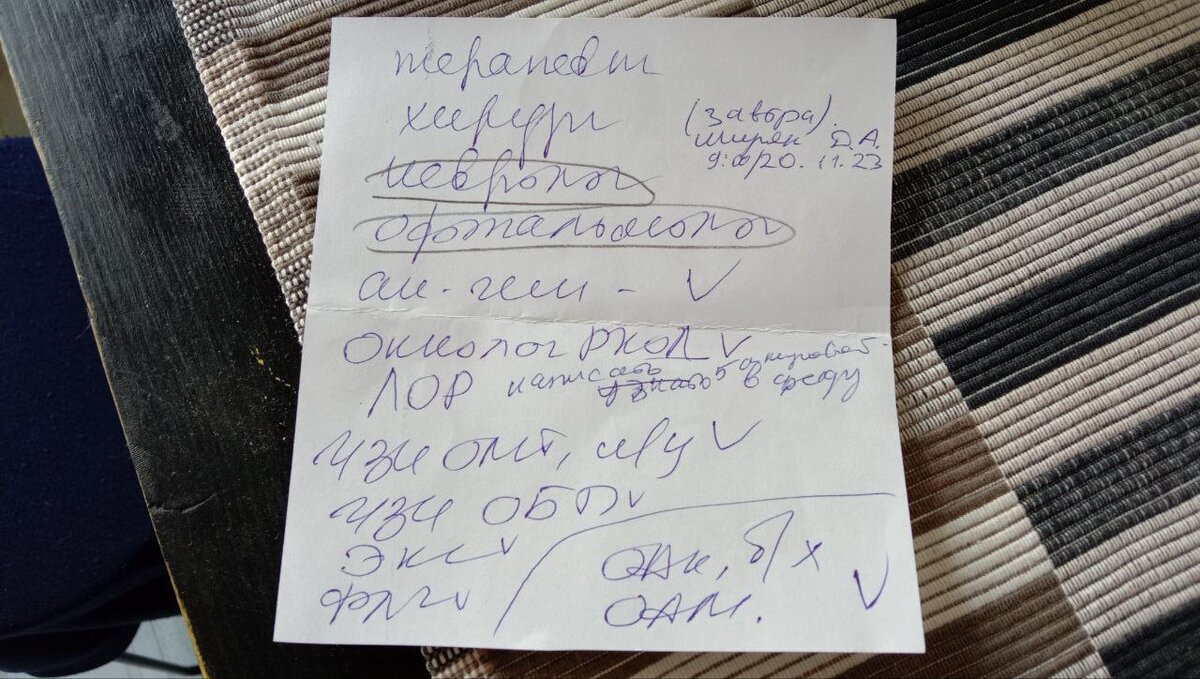 терапевт
хирург (завтра).
Ширяк Д.А.
9:00/20.11.23
невролог
офтальмолог
ак-гин - ✓
онколог РКОД ✓
ЛОР написать в среду
УЗИ ОМТ, м/у ✓
УЗИ ОБП ✓
ЭКГ ✓
ФЛГ ✓
ОАК, б/х
ОАМ. ✓